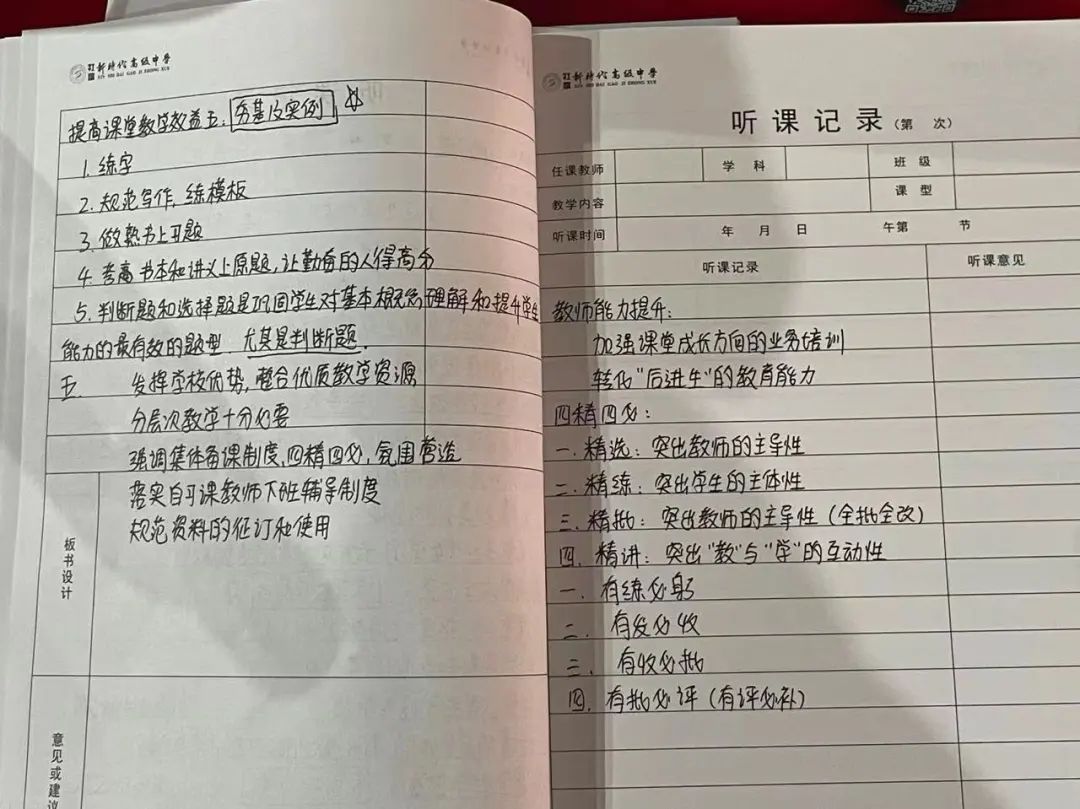 新时代高级中学
XIN SHI DAI GAO JI ZHONG XUE
提高课堂教学效益五：夯基及实例
1. 练字
2. 规范写作，练模板
3. 做熟书上习题
4. 考高书本和讲义上原题，让勤奋的人得高分
5. 判断题和选择题是巩固学生对基本概念理解和提升学生
能力的最有效的题型 尤其是判断题.
五. 发挥学校优势，整合优质教学资源
分层次教学十分必要
强调集体备课制度，四精四必，氛围营造
落实自习课教师下班辅导制度
规范资料的征订和使用
板书设计
意见或建议
新时代高级中学
XIN SHI DAI GAO JI ZHONG XUE
听课记录（第 次）
任课教师 学科 班级
教学内容 课型
听课时间 年 月 日 午第 节
听课记录 听课意见
教师能力提升：
加强课堂成长方向的业务培训
转化"后进生"的教育能力
四精四必：
一. 精选：突出教师的主导性
二. 精练：突出学生的主体性
三. 精批：突出教师的主导性（全批全改）
四. 精讲：突出"教"与"学"的互动性
一. 有练必躬
二. 有发必收
三. 有收必批
四. 有批必评（有评必补）